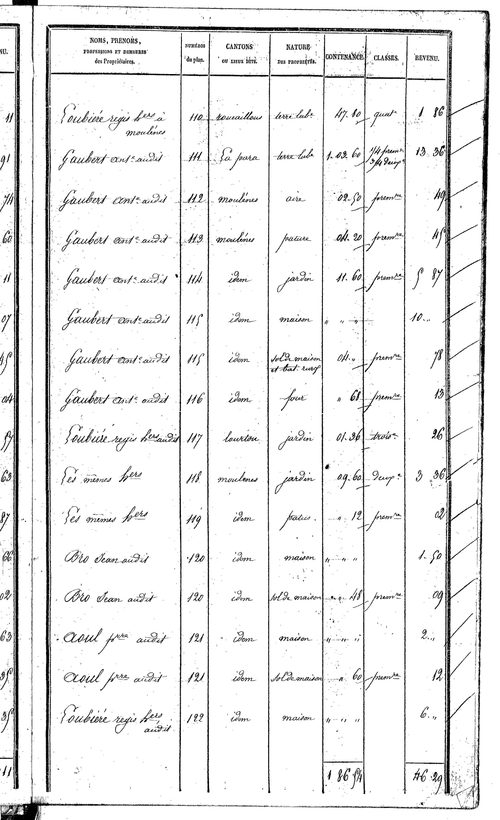 NOMS, PRÉNOMS,
PROFESSIONS ET DEMEURES
des Propriétaires.
NUMÉROS
du plan.
CANTONS
OU LIEUX DITS.
NATURE
DES PROPRIÉTÉS.
CONTENANCE.
CLASSES.
REVENU.
Loubiére regis hers à 110 roucaillous terre labe 47. 10 quat 1 86
moulénes
Gaubert Ante audit 111 La para terre labe 1. 03. 60 1/4 premre 13 36
3/4 deuxe
Gaubert Ante audit 112 moulénes aire 02. 50 premre 49
Gaubert Ante audit 113 moulénes pature 04. 20 premre 45
Gaubert Ante audit 114 idem jardin 11. 60 premre 5 87
Gaubert Ante audit 115 idem maison " " " 10 ..
Gaubert Ante audit 115 idem sol de maison 04. " premre 78
et bat. rural
Gaubert Ante audit 116 idem four " 61 premre 13
Loubiére regis hers audit 117 jardin 01. 36 troise 26
Les mêmes hers 118 moulenes jardin 09. 60 deuxe 3 36
Les mêmes hers 119 idem patus " 12 premre 02
Bro Jean audit 120 idem maison " " " 1. 50
Bro Jean audit 120 idem sol de maison " " 48 premre 09
Aoul prre audit 121 idem maison " " " 2 ..
Aoul prre audit 121 idem sol de maison " 60 premre 12
Loubiére regis hers 122 idem maison " " " 6 ..
audit
1 86 54 46 29